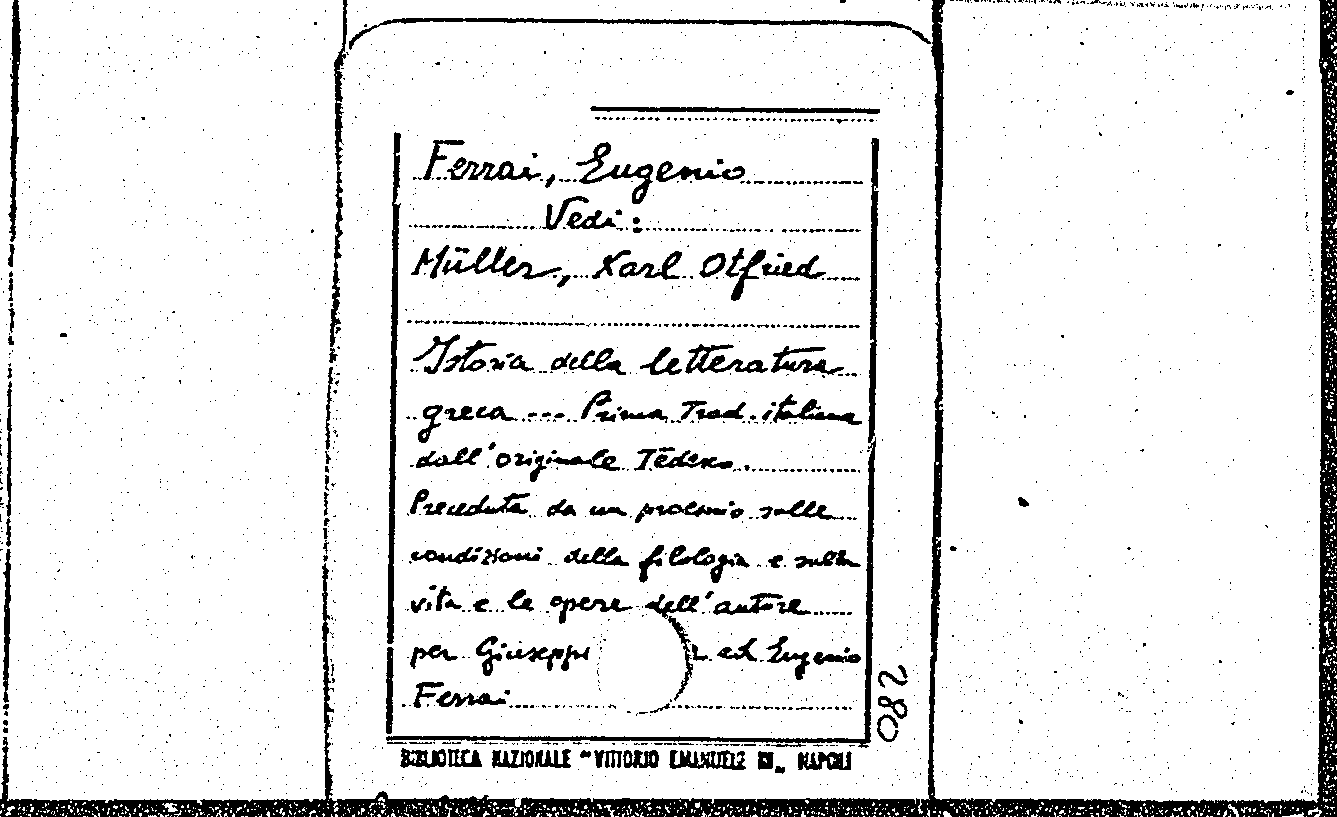 Ferrai, Eugenio
Vedi:
Müller, Karl Otfried
Istoria della letteratura
greca --- Prima Trad. italiana
dall'originale Tedesco.
Preceduta da un proemio sulle
condizioni della filologia e sulla
vita e le opere dell'autore
per Giuseppe ed Eugenio
Ferrai
280
BIBLIOTECA NAZIONALE "VITTORIO EMANUELE III„ NAPOLI